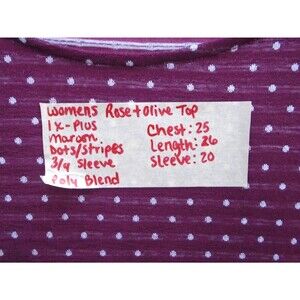 Womens Rose+Olive Top
1X-Plus
Maroon
Dots/Stripes
3/4 Sleeve
Poly Blend
Chest: 25
Length: 26
Sleeve: 20